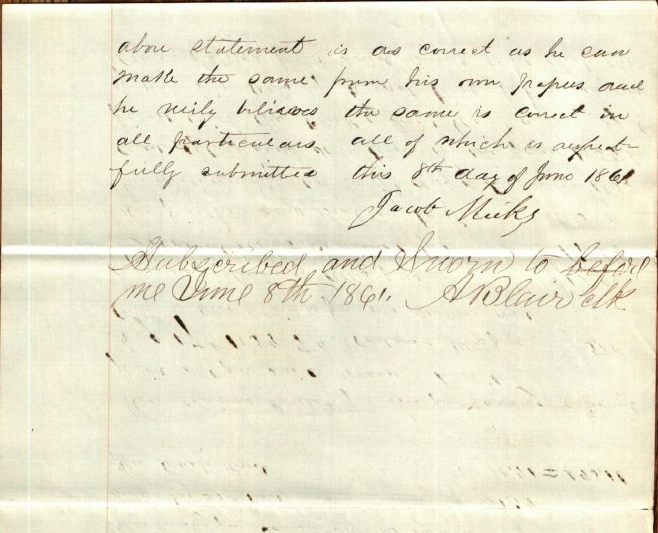 above statement is as correct as he can
make the same from his own papers and
he verily believes the same is correct in
all particulars all of which is respect-
fully submitted this 8th day of June 1861
Jacob Meeks
Subscribed and Sworn to before
me June 8th 1861. A Blair Clk